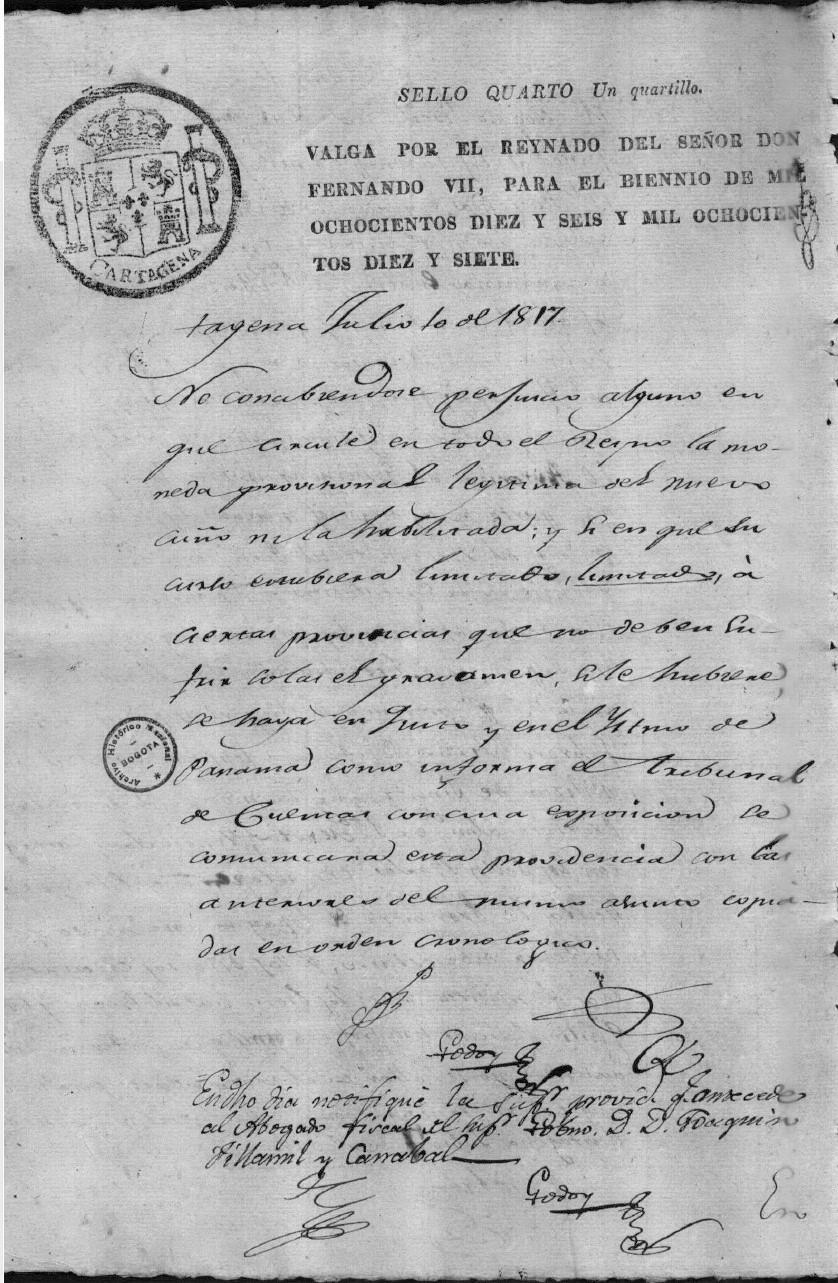 SELLO QUARTO Un quartillo.
VALGA POR EL REYNADO DEL SEÑOR DON
FERNANDO VII, PARA EL BIENNIO DE MIL
OCHOCIENTOS DIEZ Y SEIS Y MIL OCHOCIEN
TOS DIEZ Y SIETE.
CARTAGENA
tagena Julio 10 de 1817.
No conabiendose perjuicio alguno en
que circule en todo el Reyno la mo-
neda provisional legitima del nuevo
cuño ni la habilitada; y si en que su
curso estubiera limitado, limitado, à
ciertas provincias que no deben su-
frir solas el gravamen, si le hubiere
se haya en Quito y en el Ystmo de
Panamá como informa el Tribunal
de Cuentas con cuia exposicion se
comunicará esta providencia con las
anteriores del mismo asunto copia-
das en orden cronologico.
Archivo Histórico Nacional
BOGOTA
Godoy
En dho dia notifiqué la supr. provida. q. antecede
al Abogado fiscal del supr. Gobno. D. D. Joaquin
Villamil y Canabal
Godoy
En